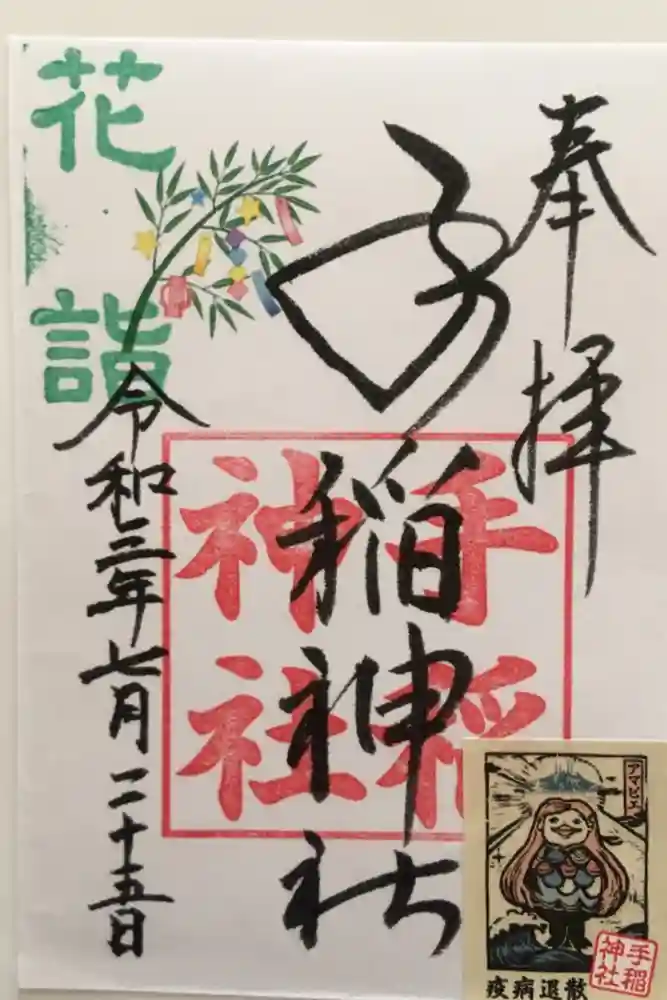 奉拝
手稲神社
手稲
神社
令和三年七月二十五日
花詣
アマビエ
疫病退散
手稲
神社